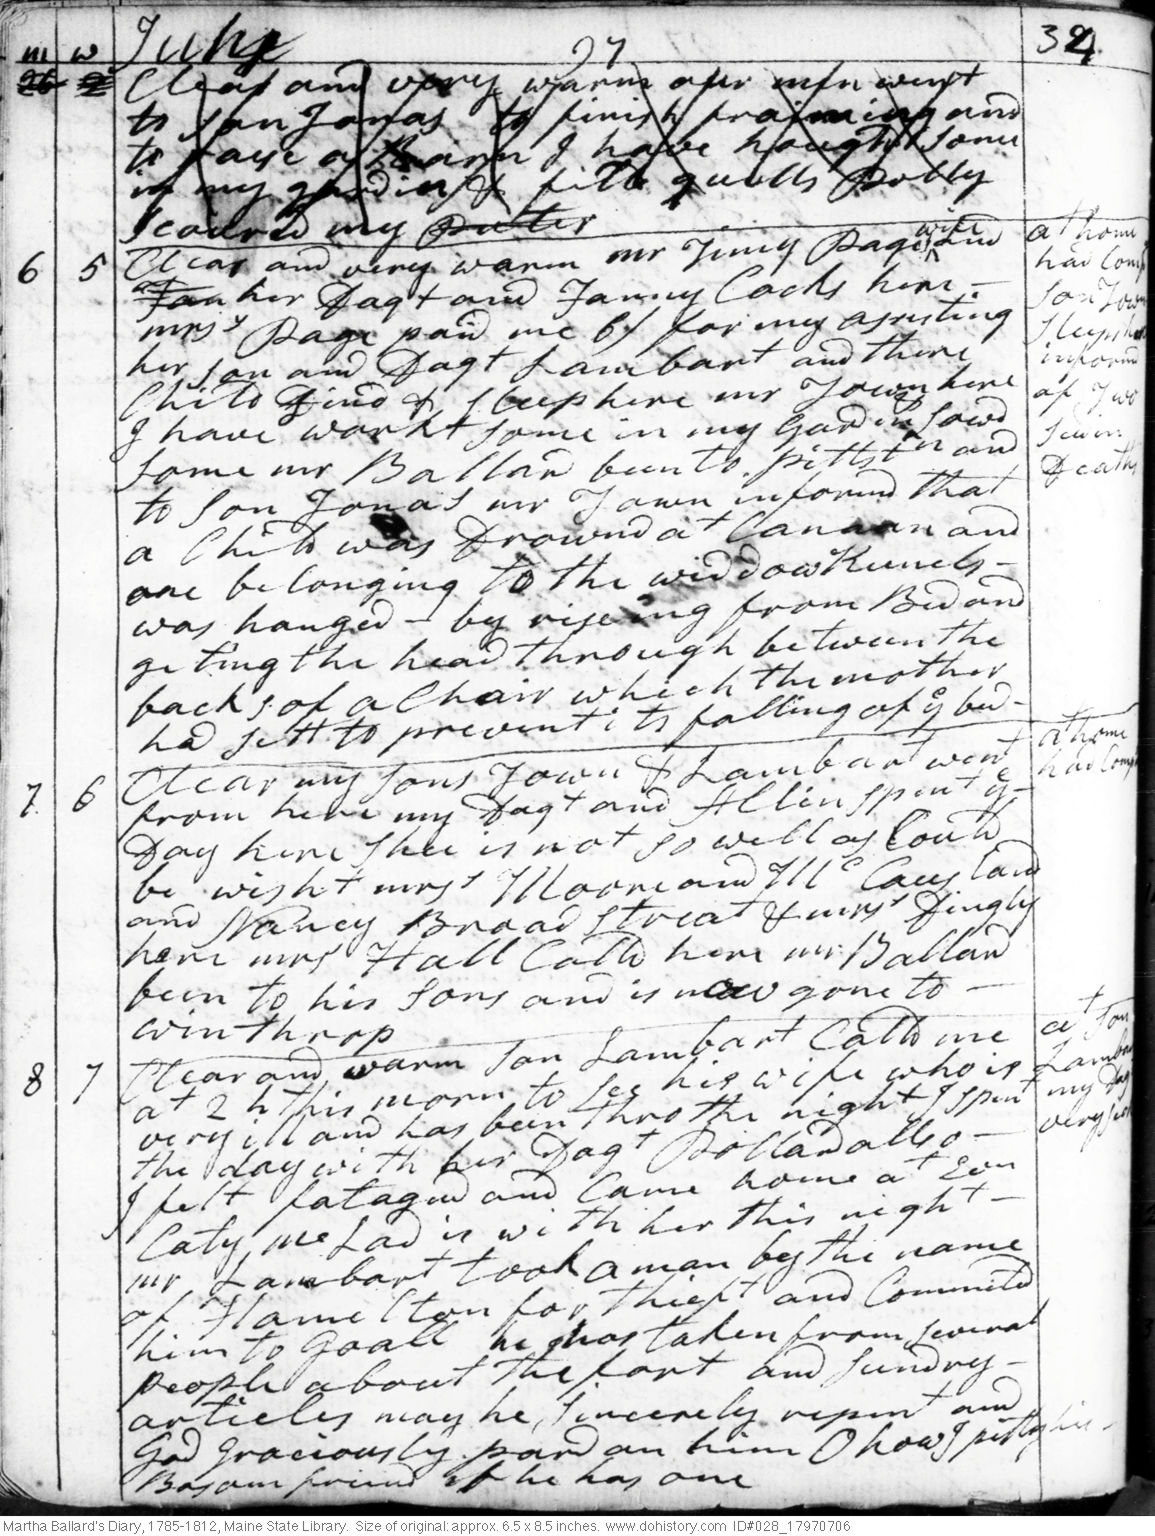 m w June 97 324
26 2 Clear and very warm our men went
to son Jonas to finish fraiming and
to raise a Barn I have hough some
in my gardin & fild quills Dolly
scoured my puter
6 5 Clear and very warm mr Timy Page wife and
her Dagt and Fanny Cocks here –
mrss Page paid me 6/ for my assisting
her son and Dagt Lambart and there
Child Dind & sleep here mr Town here
I have workt some in my gardin sowd
some mr Ballard been to Pittstn and
to son Jonas mr Town informd that
a Child was Drownd at Canaan and
one belonging to the widdow
was hanged – by riseing from Bed and
geting the head through between the
backs of a Chair which the mother
had sett to prevent its falling of ye bed –
at home
had Comp
son Town
sleep here
informd
of Two
Deaths
7 6 Clear my sons Town & Lambart went
from here my Dagt and Allin spent ye
Day here shee is not so well as Could
be wisht mrss Moore and Mc Causland
and Nancy Broadstreat & mrss Dingly
here mrs Hall Calld here mr Ballard
been to his sons and is now gone to –
winthrop
at home
had Comp
8 7 Clear and warm son Lambart Calld me
at 2 h this morn to see his wife who is
very ill and has been thro the night I spent
the day with her Dagt Pollard allso –
I felt fataged and Came home at Evn
Caty Mc Lad is with her this night –
mr Lambart took a man by the name
of Hamelton for thieft and Committd
him to Goall he has taken from several
people about the fort and sundry –
articles may he sincerely repent and
God graciously pardon him O how I pitty his –
Bosom friend if he has one
at son
Lambard
my Dag
very sick
Martha Ballard's Diary, 1785-1812, Maine State Library. Size of original: approx. 6.5 x 8.5 inches. www.dohistory.com ID#028_17970706